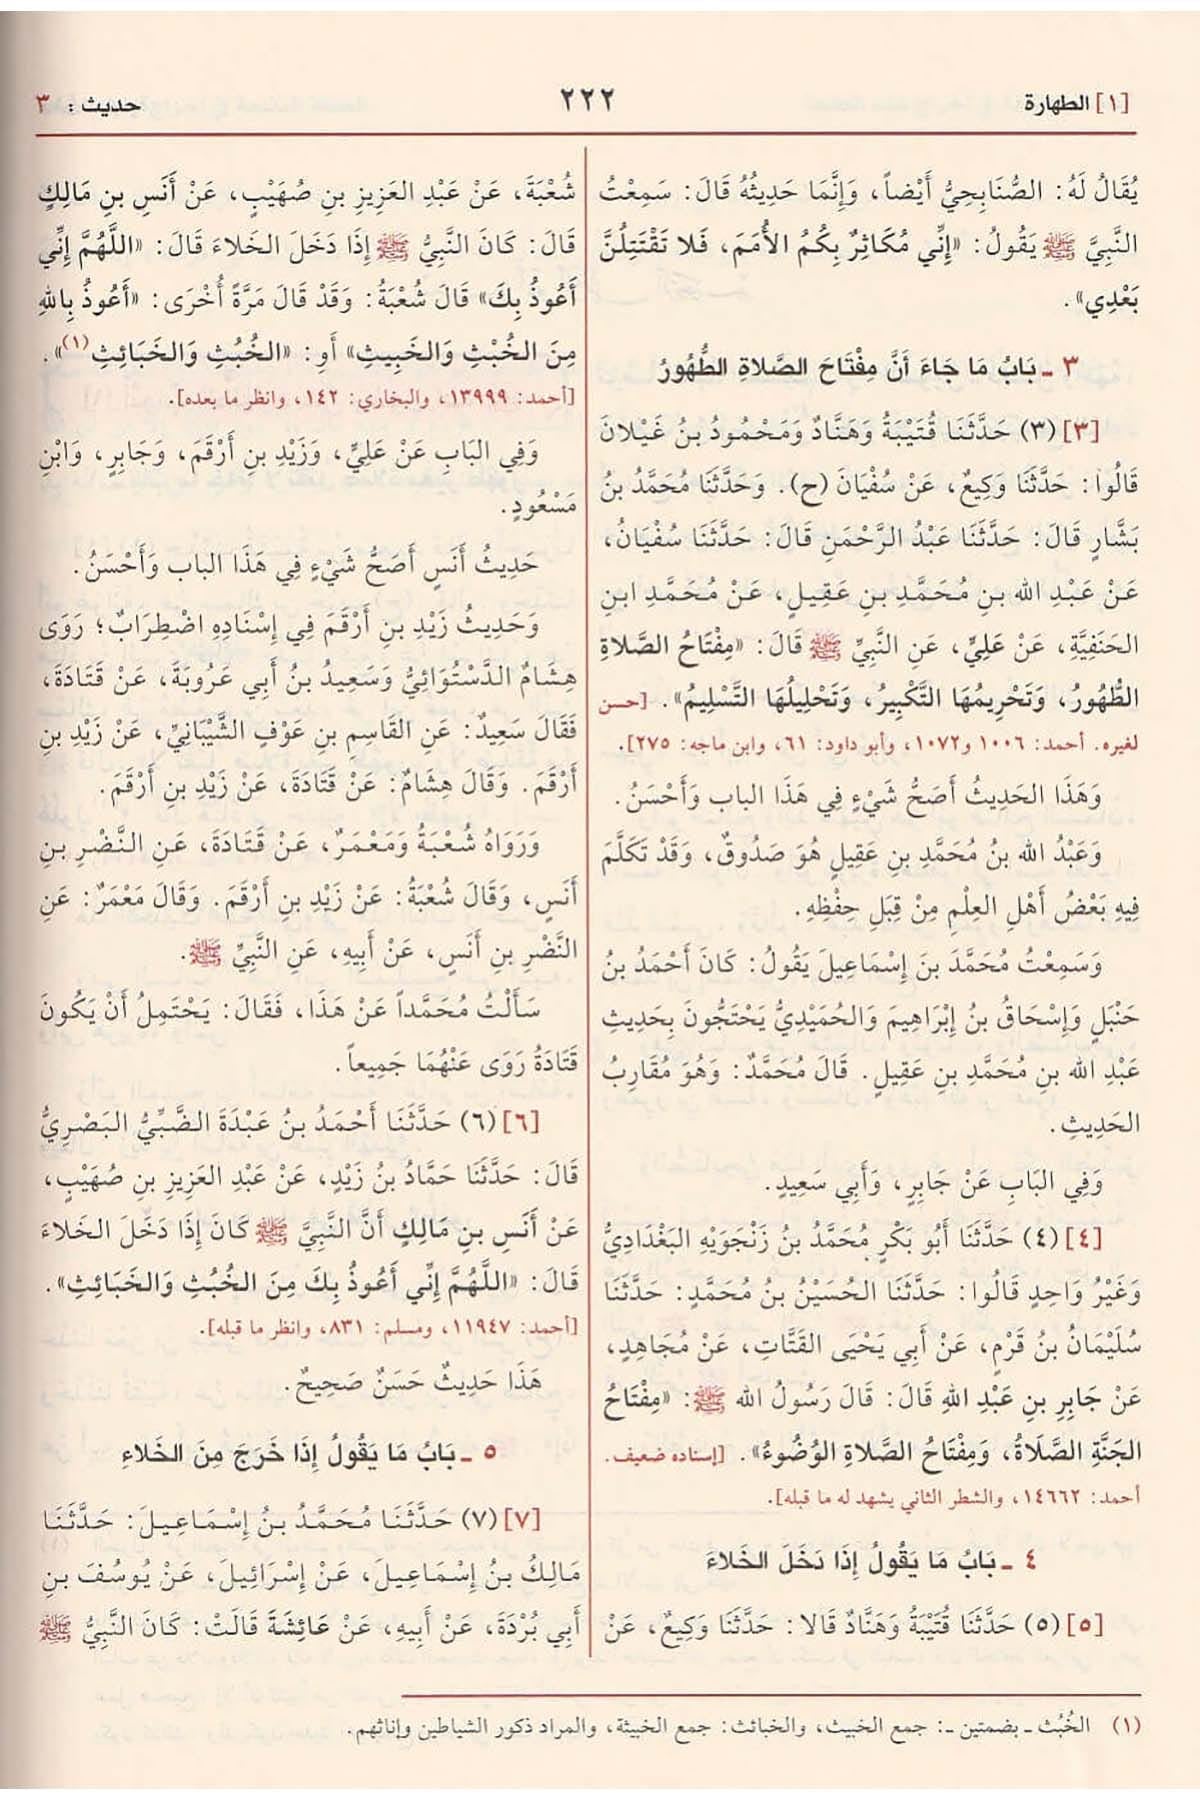 [١] الطهارة
٢٢٢
حديث: ٣
يُقَالُ لَهُ: الصُّنَابِحِيُّ أَيْضاً، وَإِنَّمَا حَدِيثُهُ قَالَ: سَمِعْتُ
النَّبِيَّ ﷺ يَقُولُ: «إِنِّي مُكَاثِرٌ بِكُمُ الأُمَمَ، فَلا تَقْتَتِلُنَّ
بَعْدِي».
٣ ـ بَابُ مَا جَاءَ أَنَّ مِفْتَاحَ الصَّلاةِ الطُّهُورُ
[٣] (٣) حَدَّثَنَا قُتَيْبَةُ وَهَنَّادٌ وَمَحْمُودُ بنُ غَيْلانَ
قَالُوا: حَدَّثَنَا وَكِيعٌ، عَنْ سُفْيَانَ (ح). وَحَدَّثَنَا مُحَمَّدُ بنُ
بَشَّارٍ قَالَ: حَدَّثَنَا عَبْدُ الرَّحْمَنِ قَالَ: حَدَّثَنَا سُفْيَانُ،
عَنْ عَبْدِ الله بنِ مُحَمَّدِ بنِ عَقِيلٍ، عَنْ مُحَمَّدِ ابنِ
الحَنَفِيَّةِ، عَنْ عَلِيٍّ، عَنِ النَّبِيِّ ﷺ قَالَ: «مِفْتَاحُ الصَّلاةِ
الطُّهُورُ، وَتَحْرِيمُهَا التَّكْبِيرُ، وَتَحْلِيلُهَا التَّسْلِيمُ». [حسن
لغيره. أحمد: ١٠٠٦ و١٠٧٢، وأبو داود: ٦١، وابن ماجه: ٢٧٥].
وَهَذَا الحَدِيثُ أَصَحُّ شَيْءٍ فِي هَذَا الباب وَأَحْسَنُ.
وَعَبْدُ الله بنُ مُحَمَّدِ بنِ عَقِيلٍ هُوَ صَدُوقٌ، وَقَدْ تَكَلَّمَ
فِيهِ بَعْضُ أَهْلِ العِلْمِ مِنْ قِبَلِ حِفْظِهِ.
وَسَمِعْتُ مُحَمَّدَ بنَ إِسْمَاعِيلَ يَقُولُ: كَانَ أَحْمَدُ بنُ
حَنْبَلٍ وَإِسْحَاقُ بنُ إِبْرَاهِيمَ وَالحُمَيْدِيُّ يَحْتَجُّونَ بِحَدِيثِ
عَبْدِ الله بنِ مُحَمَّدِ بنِ عَقِيلٍ. قَالَ مُحَمَّدٌ: وَهُوَ مُقَارِبُ
الحَدِيثِ.
وَفِي البَابِ عَنْ جَابِرٍ، وَأَبِي سَعِيدٍ.
[٤] (٤) حَدَّثَنَا أَبُو بَكْرٍ مُحَمَّدُ بنُ زَنْجَوَيْهِ البَغْدَادِيُّ
وَغَيْرُ وَاحِدٍ قَالُوا: حَدَّثَنَا الحُسَيْنُ بنُ مُحَمَّدٍ: حَدَّثَنَا
سُلَيْمَانُ بنُ قَرْمٍ، عَنْ أَبِي يَحْيَى القَتَّاتِ، عَنْ مُجَاهِدٍ،
عَنْ جَابِرِ بنِ عَبْدِ اللهِ قَالَ: قَالَ رَسُولُ الله ﷺ: «مِفْتَاحُ
الجَنَّةِ الصَّلَاةُ، وَمِفْتَاحُ الصَّلاةِ الوُضُوءُ». [إسناده ضعيف.
أحمد: ١٤٦٦٢، والشطر الثاني يشهد له ما قبله].
٤ ـ بَابُ مَا يَقُولُ إِذَا دَخَلَ الخَلاءَ
[٥] (٥) حَدَّثَنَا قُتَيْبَةُ وَهَنَّادٌ قَالا: حَدَّثَنَا وَكِيعٌ، عَنْ
شُعْبَةَ، عَنْ عَبْدِ العَزِيزِ بنِ صُهَيْبٍ، عَنْ أَنَسِ بنِ مَالِكٍ
قَالَ: كَانَ النَّبِيُّ ﷺ إِذَا دَخَلَ الخَلاءَ قَالَ: «اللَّهُمَّ إِنِّي
أَعُوذُ بِكَ» قَالَ شُعْبَةُ: وَقَدْ قَالَ مَرَّةً أُخْرَى: «أَعُوذُ بِاللهِ
مِنَ الخُبْثِ وَالخَبِيثِ» أَوِ: «الخُبُثِ وَالخَبَائِثِ(١)».
[أحمد: ١٣٩٩٩، والبخاري: ١٤٢، وانظر ما بعده].
وَفِي البَابِ عَنْ عَلِيٍّ، وَزَيْدِ بنِ أَرْقَمَ، وَجَابِرٍ، وَابْنِ
مَسْعُودٍ.
حَدِيثُ أَنَسٍ أَصَحُّ شَيْءٍ فِي هَذَا الباب وَأَحْسَنُ.
وَحَدِيثُ زَيْدِ بنِ أَرْقَمَ فِي إِسْنَادِهِ اضْطِرَابٌ؛ رَوَى
هِشَامٌ الدَّسْتُوَائِيُّ وَسَعِيدُ بنُ أَبِي عَرُوبَةَ، عَنْ قَتَادَةَ،
فَقَالَ سَعِيدٌ: عَنِ القَاسِمِ بنِ عَوْفٍ الشَّيْبَانِيِّ، عَنْ زَيْدِ بنِ
أَرْقَمَ. وَقَالَ هِشَامٌ: عَنْ قَتَادَةَ، عَنْ زَيْدِ بنِ أَرْقَمَ.
وَرَوَاهُ شُعْبَةُ وَمَعْمَرٌ، عَنْ قَتَادَةَ، عَنِ النَّضْرِ بنِ
أَنَسٍ، وَقَالَ شُعْبَةُ: عَنْ زَيْدِ بنِ أَرْقَمَ. وَقَالَ مَعْمَرٌ: عَنِ
النَّضْرِ بنِ أَنَسٍ، عَنْ أَبِيهِ، عَنِ النَّبِيِّ ﷺ.
سَأَلْتُ مُحَمَّداً عَنْ هَذَا، فَقَالَ: يَحْتَمِلُ أَنْ يَكُونَ
قَتَادَةُ رَوَى عَنْهُمَا جَمِيعاً.
[٦] (٦) حَدَّثَنَا أَحْمَدُ بنُ عَبْدَةَ الضَّبِّيُّ البَصْرِيُّ
قَالَ: حَدَّثَنَا حَمَّادُ بنُ زَيْدٍ، عَنْ عَبْدِ العَزِيزِ بنِ صُهَيْبٍ،
عَنْ أَنَسِ بنِ مَالِكٍ أَنَّ النَّبِيَّ ﷺ كَانَ إِذَا دَخَلَ الخَلاءَ
قَالَ: «اللَّهُمَّ إِنِّي أَعُوذُ بِكَ مِنَ الخُبُثِ وَالخَبَائِثِ».
[أحمد: ١١٩٤٧، ومسلم: ٨٣١، وانظر ما قبله].
هَذَا حَدِيثٌ حَسَنٌ صَحِيحٌ.
٥ ـ بَابُ مَا يَقُولُ إِذَا خَرَجَ مِنَ الخَلاءِ
[٧] (٧) حَدَّثَنَا مُحَمَّدُ بنُ إِسْمَاعِيلَ: حَدَّثَنَا
مَالِكُ بنُ إِسْمَاعِيلَ، عَنْ إِسْرَائِيلَ، عَنْ يُوسُفَ بنِ
أَبِي بُرْدَةَ، عَنْ أَبِيهِ، عَنْ عَائِشَةَ قَالَتْ: كَانَ النَّبِيُّ ﷺ
(١) الخُبُث ـ بضمتين ـ: جمع الخبيث، والخبائث: جمع الخبيثة، والمراد ذكور الشياطين وإناثهم.